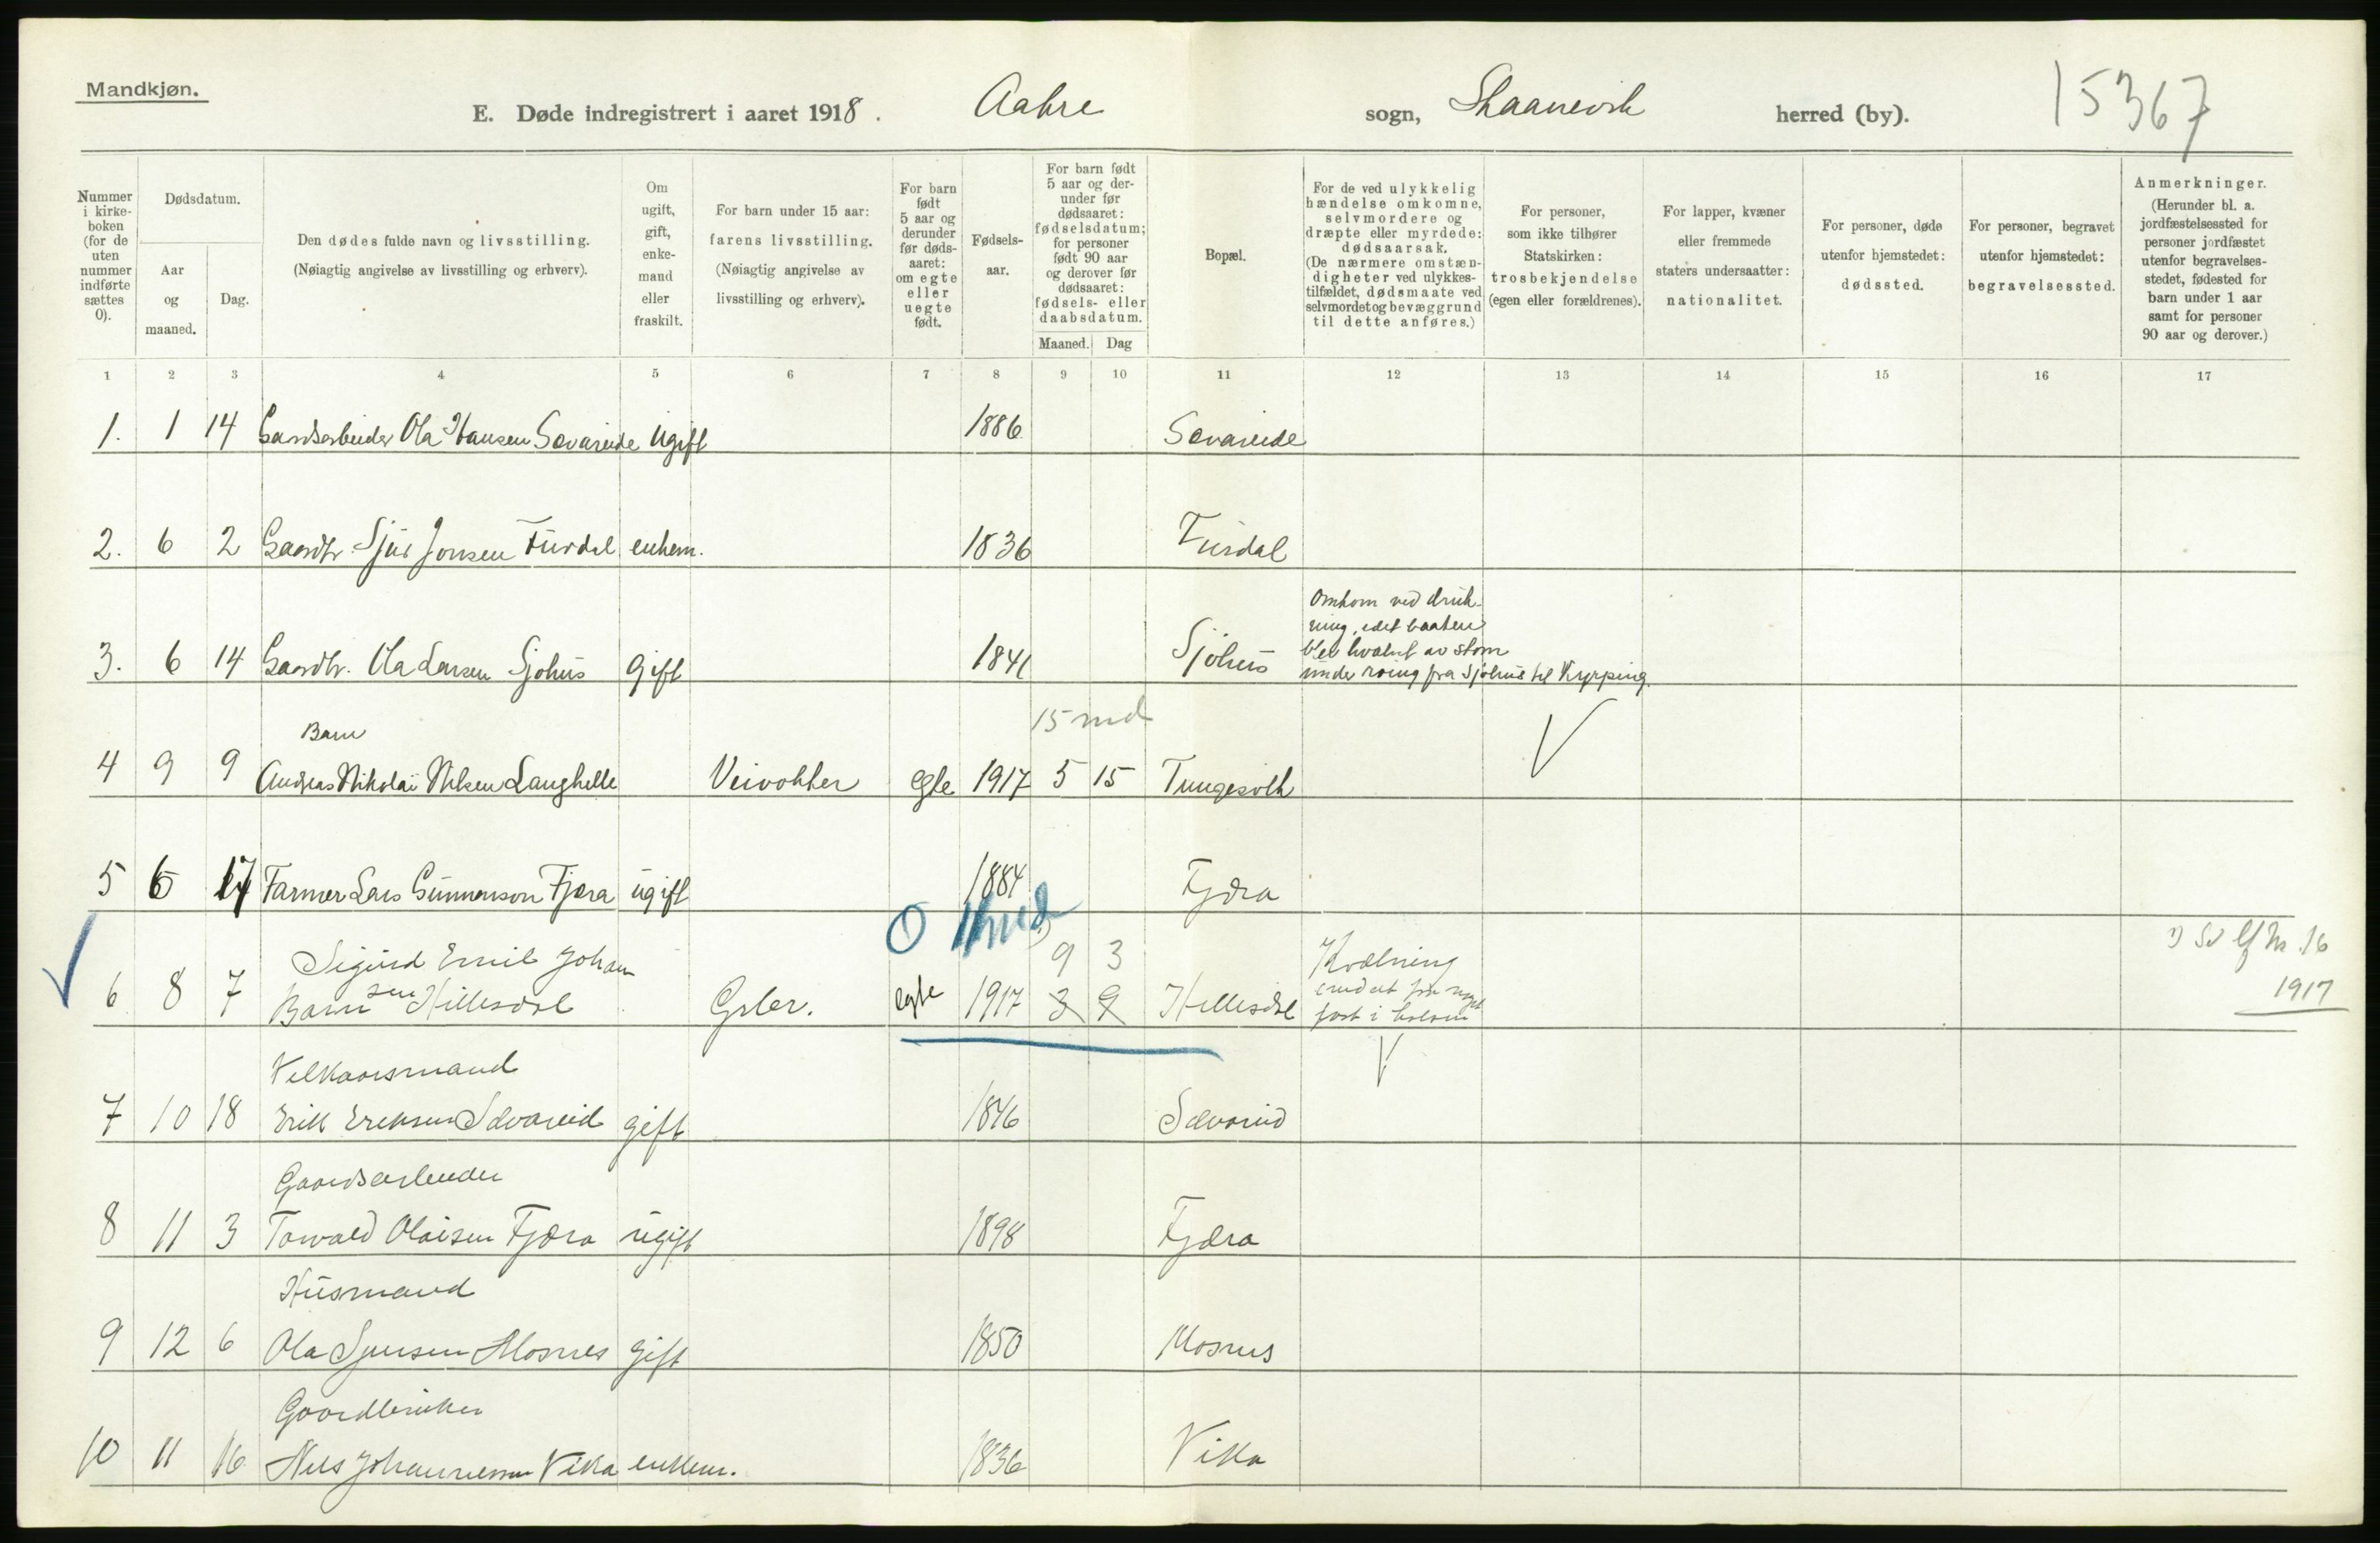 Mandkjøn.
E. Døde indregistrert i aaret 1918. Aakre sogn, Skaanevik herred (by). 15367
Nummer i kirke-boken (for de uten nummer indførte sættes 0).
Dødsdatum.
Aar og maaned.
Dag.
Den dødes fulde navn og livsstilling.
(Nøiagtig angivelse av livsstilling og erhverv).
Om ugift, gift, enke-mand eller fraskilt.
For barn under 15 aar: farens livsstilling.
(Nøiagtig angivelse av livsstilling og erhverv).
For barn født 5 aar og derunder før døds-aaret: om egte eller uegte født.
Fødsels-aar.
For barn født 5 aar og der-under før dødsaaret: fødselsdatum; for personer født 90 aar og derover før dødsaaret: fødsels- eller daabsdatum.
Maaned. Dag
Bopæl.
For de ved ulykkelig hændelse omkomne, selvmordere og dræpte eller myrdede: dødsaarsak.
(De nærmere omstæn-digheter ved ulykkes-tilfældet, dødsmaate ved selvmordet og bevæggrund til dette anføres.)
For personer, som ikke tilhører Statskirken: trosbekjendelse (egen eller forældrenes).
For lapper, kvæner eller fremmede staters undersaatter: nationalitet.
For personer, døde utenfor hjemstedet: dødssted.
For personer, begravet utenfor hjemstedet: begravelsessted.
Anmerkninger.
(Herunder bl. a. jordfæstelsessted for personer jordfæstet utenfor begravelses-stedet, fødested for barn under 1 aar samt for personer 90 aar og derover.)
1 2 3 4 5 6 7 8 9 10 11 12 13 14 15 16 17
1. 1 14 Gardsarbeider Ola Hansen Sævareide ugift 1886 Sævareide
2. 6 2 Gaardbr. Sjur Jonsen Furdal enkem. 1836 Furdal
Omkom ved druk-
ning, idet baaten
blev hvælvet av storm
3. 6 14 Gaardbr. Ola Larsen Sjøhus gift 1841 Sjøhus under roing fra Sjøhus til Kyrping.
15 md
Barn
4 9 9 Andreas Nikolai Nilsen Langhelle Veivokter egte 1917 5 15 Tungesvik
5 6 17 Farmer Lars Gunnarson Fjæra ugift 1884 Fjæra
Sigurd Emil Johan 9 3 Kvælning 1) Se lf Nr. 16
6 8 7 Barn sen Hillesdal Gsbr. egte 1917 3 9 Hillesdal 1917
Velkaarsmand
7 10 18 Erik Eriksen Sævareid gift 1846 Sævareid
Gaardsarbeider
8 11 3 Torvald Olaisen Fjæra ugift 1898 Fjæra
Husmand
9 12 6 Ola Mosnes gift 1850 Mosnes
Gaardbruker
10 11 16 Nils Johannessen Vika enkem. 1836 Vika